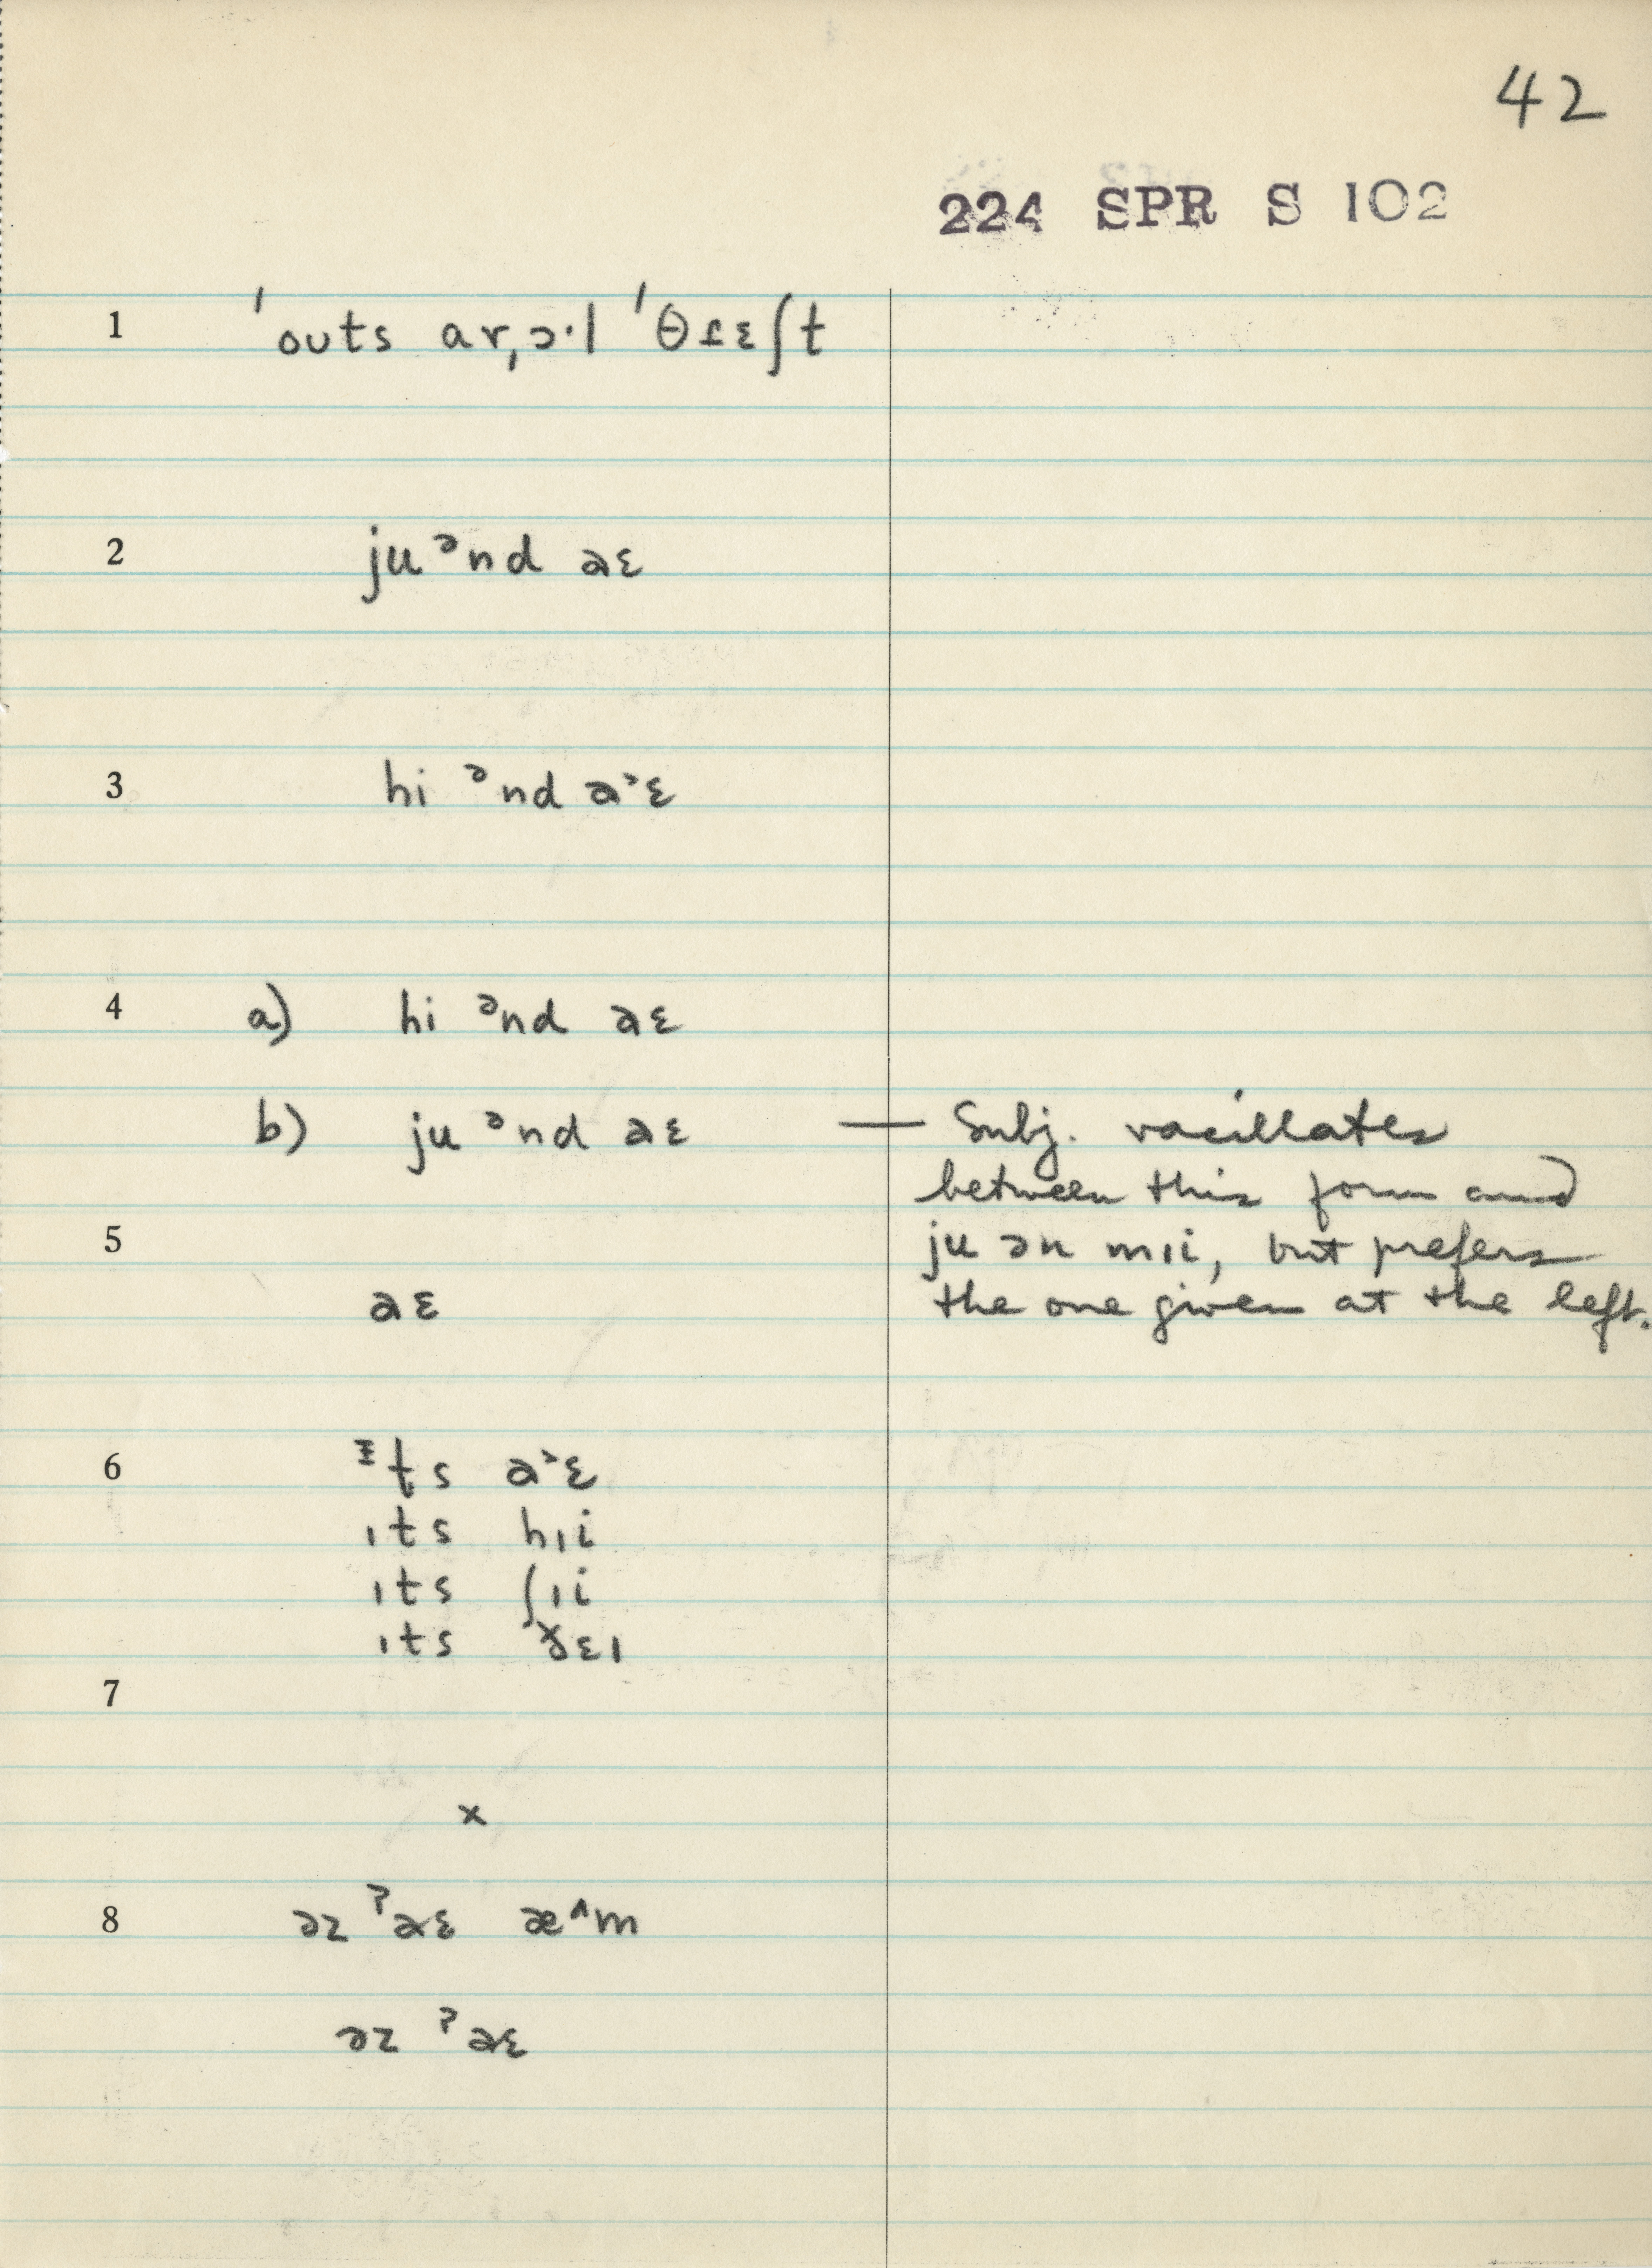 42
224 SPR S 102
1 ˈouts ar,ɔ·l ˈθɾɛʃt
2 ju ᵊnd aɛ
3 hi ᵊnd a˃ɛ
4 a) hi ᵊnd aɛ
b) ju ᵊnd aɛ — Subj. vacillates
between this form and
5 ju ən mɪi, but prefers
aɛ the one given at the left.
6 ᵻts a˃ɛ
ɪts hɪi
ɪts ʃɪi
ɪts ðɛɪ
7
x
8 əz ˀaɛ æ^m
əz ˀaɛ